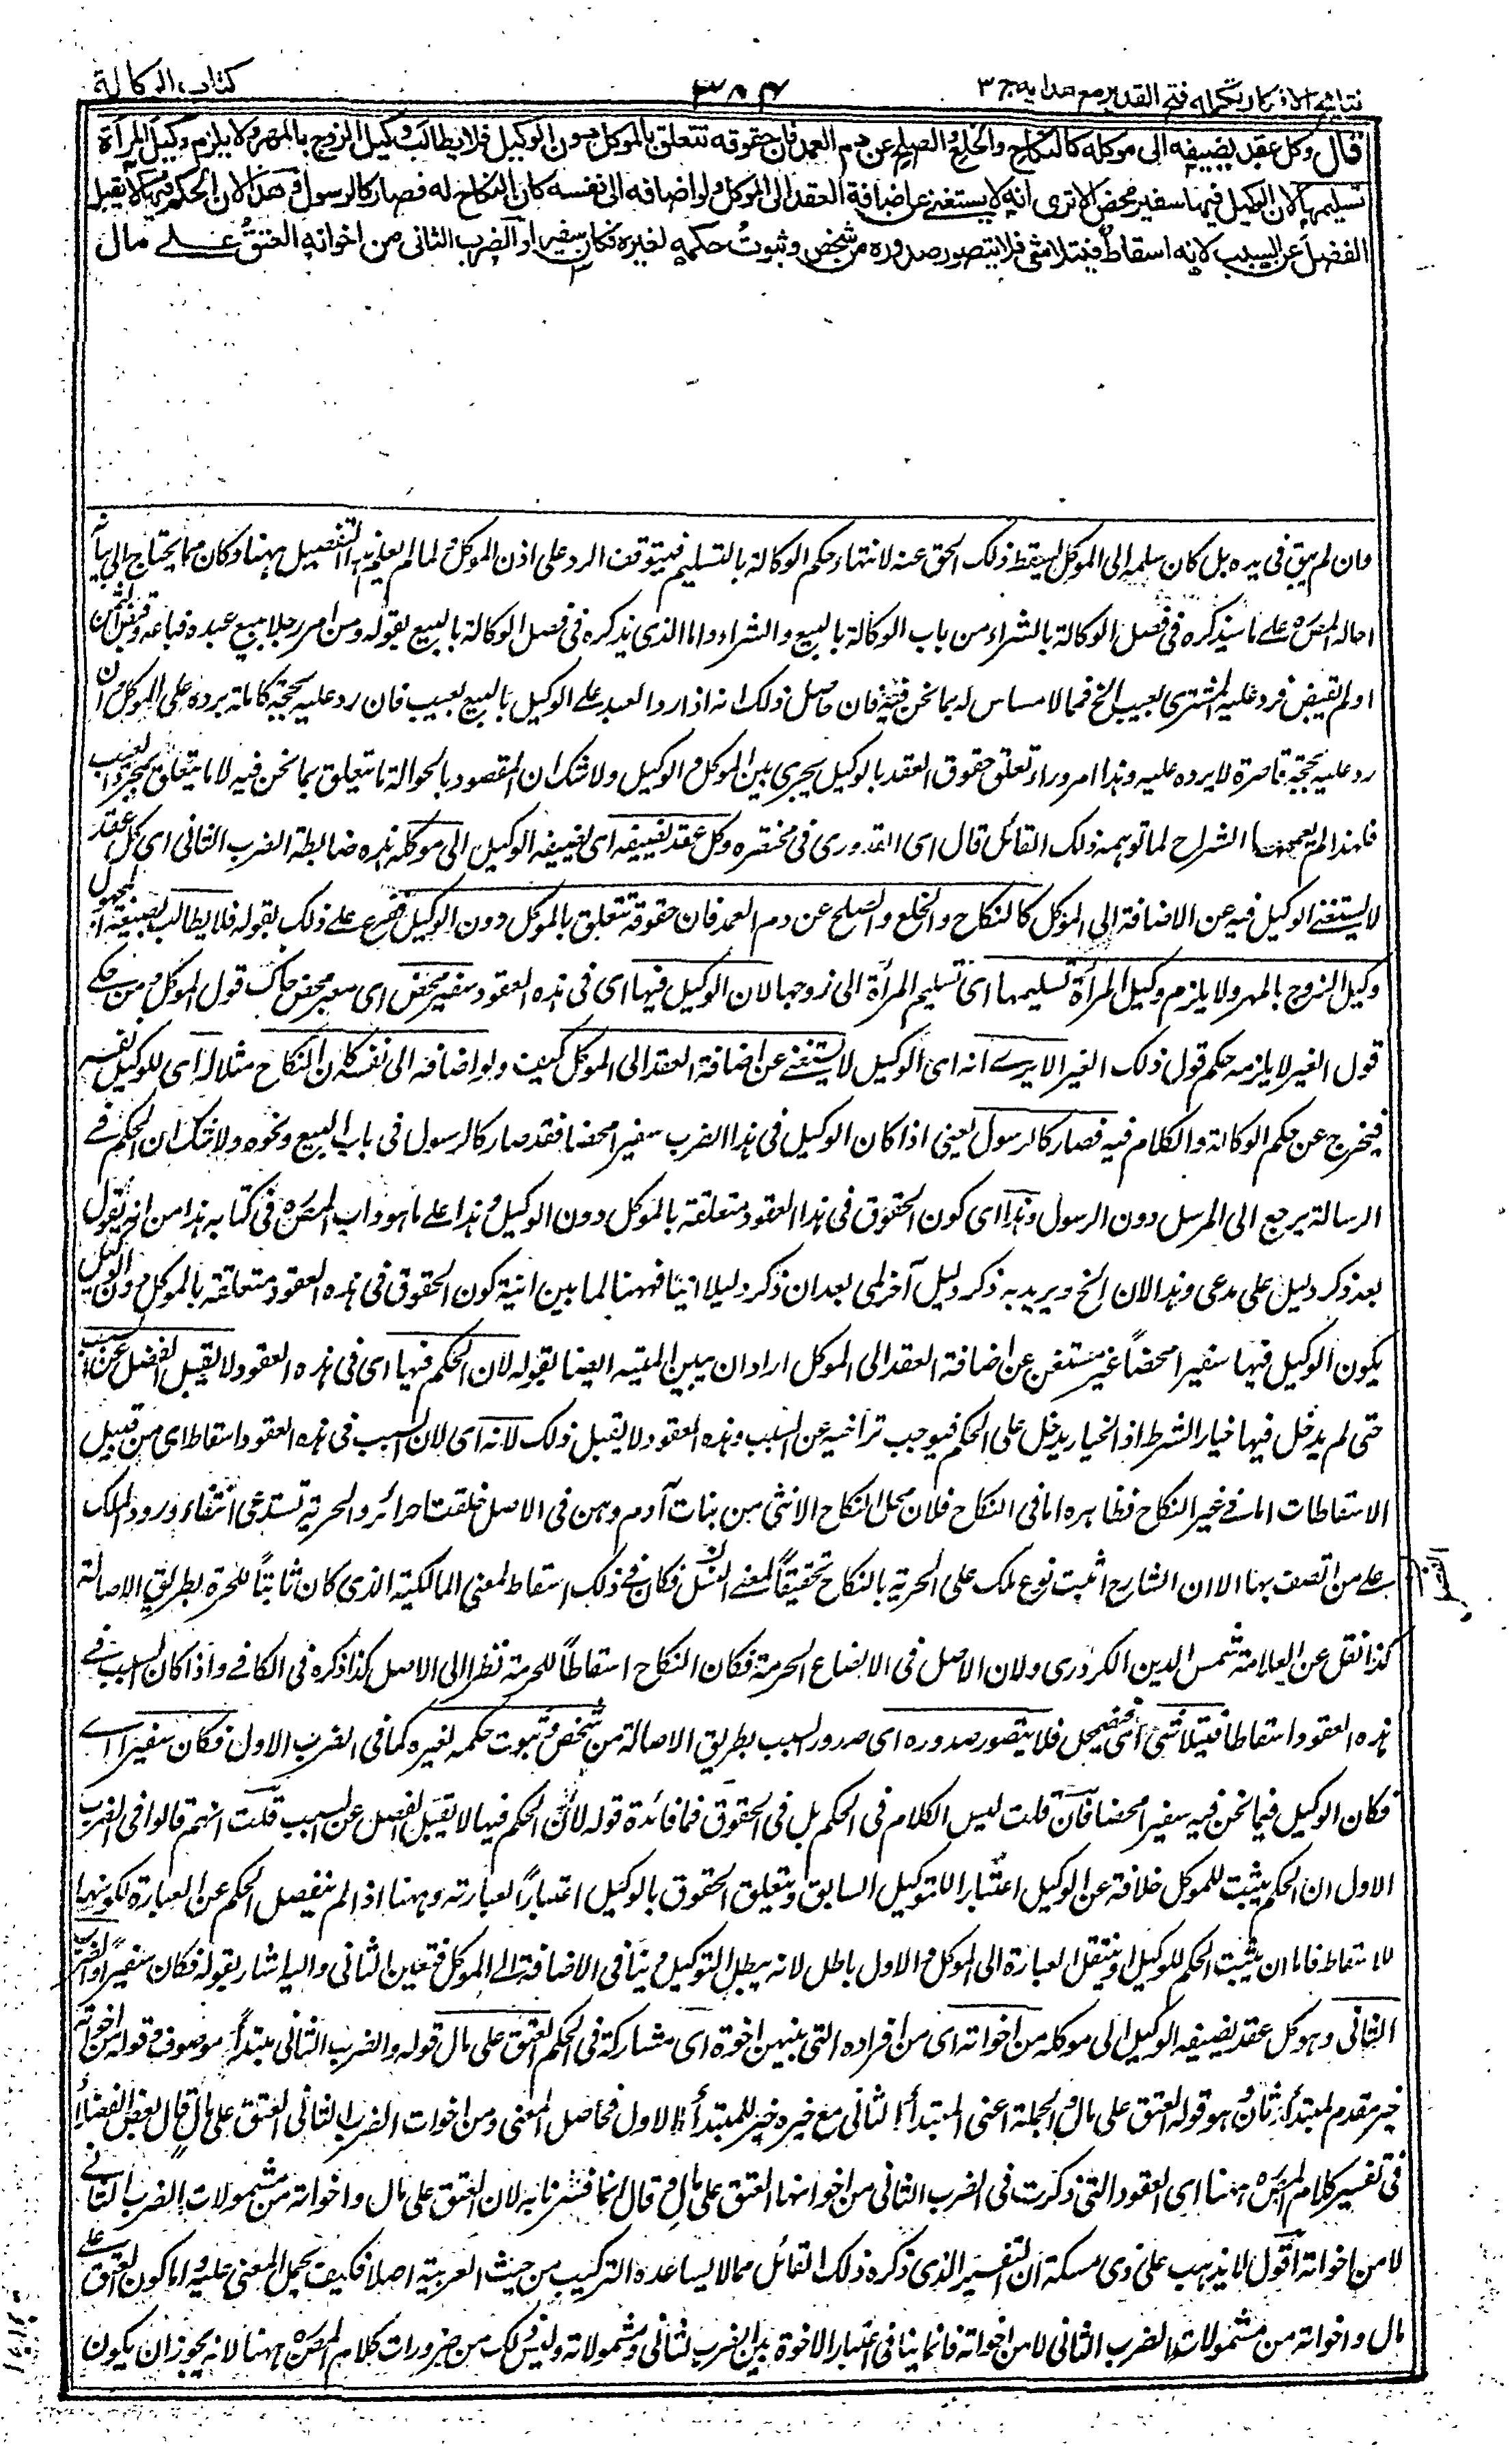 نتائج الافكار تكملہ فتح القدير مع هدايه ج ٣
٣٨٤
كتاب الوكالة
قال وكل عقد يضيفه الى موكله كالنكاح والخلع والصلح عن دم العمد فان حقوقه تتعلق بالموكل دون الوكيل فلا يطالب وكيل الزوج بالمهر ولا يلزم وكيل المرأة
تسليمها لان الوكيل فيها سفير محض الا ترى انه لا يستغنى عن اضافة العقد الى الموكل ولو اضافه الى نفسه كان النكاح له فصار كالرسول وهذا لان الحكم فيها لا يقبل
الفصل عن السبب لانه اسقاط فيتلاشى فلا يتصور صدوره من شخص وثبوت حكمه لغيره فكان سفيرا والضرب الثانى من اخواته العتق على مال
وان لم يبق فى يده بل كان سلمه الى الموكل يسقط ذلك الحق عنه لانتهاء حكم الوكالة بالتسليم فيتوقف الرد على اذن الموكل ولما لم يعلم هذا التفصيل ههنا وكان مما يحتاج الى بيان
احاله المصره على ما سيذكره فى فصل الوكالة بالشراء من باب الوكالة بالبيع والشراء واما الذى يذكره فى فصل الوكالة بالبيع بقوله ومن امر رجلا ببيع عبده فباعه وقبض الثمن
او لم يقبض فرد عليه المشترى بعيب الخ فمما لا مساس له بما نحن فيه فان حاصل ذلك انه اذا رد العبد على الوكيل بالبيع بعيب فان رد عليه بحجة كاملة يرده على الموكل وان
رد عليه بحجة قاصرة لا يرده عليه وهذا امر وراء تعلق حقوق العقد بالوكيل يجرى بين الموكل والوكيل ولا شك ان المقصود بالحوالة ما يتعلق بما نحن فيه لا ما يتعلق بمجرد العيب
فلهذا لم الشراح لما توهمه ذلك القائل قال اى القدورى فى مختصره وكل عقد يضيفه اى يضيفه الوكيل الى موكله هذه ضابطة الضرب الثانى اى كل عقد
لا يستغنى الوكيل فيه عن الاضافة الى الموكل كالنكاح والخلع والصلح عن دم العمد فان حقوقه تتعلق بالموكل دون الوكيل فرع على ذلك بقوله فلا يطالب بصيغة المجهول
وكيل الزوج بالمهر ولا يلزم وكيل المرأة تسليمها اى تسليم المرأة الى زوجها لان الوكيل فيها اى فى هذه العقود سفير محض اى معبر محض حاك قول الموكل ومن حكى
قول الغير لا يلزمه حكم قول ذلك الغير الا يرى انه اى الوكيل لا يستغنى عن اضافة العقد الى الموكل كيف ولو اضافه الى نفسه كان النكاح مثلا له اى للوكيل نفسه
فيخرج عن حكم الوكالة والكلام فيه فصار كالرسول يعنى اذا كان الوكيل فى هذا الضرب سفيرا محضا فقد صار كالرسول فى باب البيع ونحوه ولا شك ان الحكم فى
الرسالة يرجع الى المرسل دون الرسول وهذا اى كون الحقوق فى هذا العقود متعلقة بالموكل دون الوكيل وهذا على ما هو داب المصره فى كتابه هذا من انه يقول
بعد ذكر دليل على مدعى وهذا لان الخ ويريد به ذكر دليل آخر لمى بعد ان ذكر دليلا انيا فههنا لما بين انية كون الحقوق فى هذه العقود متعلقة بالموكل دون الوكيل
بكون الوكيل فيها سفيرا محضاً غير مستغن عن اضافة العقد الى الموكل اراد ان يبين لميته ايضا بقوله لان الحكم فيها اى فى هذه العقود لا يقبل الفصل عن السبب
حتى لم يدخل فيها خيار الشرط اذ الخيار يدخل على الحكم فيوجب تراخيه عن السبب وهذه العقود لا يقبل ذلك لانه اى لان السبب فى هذه العقود اسقاط اى من قبيل
الاسقاطات اما فى غير النكاح فظاهره اما فى النكاح فلان محل النكاح الانثى من بنات آدم وهن فى الاصل خلقت حرائر والحرية تستدعى انتفاء ورود الملك
على من اتصف بها الا ان الشارع اثبت نوع ملك على الحرية بالنكاح تحقيقاً لمعنى النسل فكان فى ذلك اسقاط لمعنى المالكية الذى كان ثابتاً للحرة بطريق الاصالة
كذا نقل عن العلامة شمس الدين الكردرى ولان الاصل فى الابضاع الحرمة فكان النكاح اسقاطاً للحرمة نظرا الى الاصل كذا ذكره فى الكافى واذا كان السبب فى
هذه العقود اسقاطا فيتلاشى اى فيضمحل فلا يتصور صدوره اى صدور السبب بطريق الاصالة من شخص وثبوت حكمه لغيره كما فى الضرب الاول فكان سفيرا اى
فكان الوكيل فيما نحن فيه سفيرا محضا فان قلت ليس الكلام فى الحكم بل فى الحقوق فما فائدة قوله لان الحكم فيها لا يقبل الفصل عن السبب قلت انهم قالوا فى الضرب
الاول ان الحكم يثبت للموكل خلافة عن الوكيل اعتبارا للتوكيل السابق وتعلق الحقوق بالوكيل اعتباراً لعبارته وههنا اذا لم ينفصل الحكم عن العبارة لكونها
للاسقاط فاما ان يثبت الحكم للوكيل او ينتقل العبارة الى الموكل والاول باطل لانه يبطل التوكيل وينافى الاضافة الى الموكل فتعين الثانى واليه اشار بقوله فكان سفيرا والضرب
الثانى وهو كل عقد يضيفه الوكيل الى موكله من اخواته اى من افراده التى بينهن اخوة اى مشاركة فى الحكم العتق على مال قوله والضرب الثانى مبتدأ موصوف وقوله من اخواته
خبر مقدم لمبتدأ ثان هو قوله العتق على مال والجملة اعنى المبتدأ الثانى مع خبره خبر للمبتدأ الاول فحاصل المعنى ومن اخوات الضرب الثانى العتق على مال قال بعض الفضلاء
فى تفسير كلام المصره ههنا اى العقود التى ذكرت فى الضرب الثانى من اخواتها العتق على مال وقال انما فسرنا به لان العتق على مال واخواته من مشمولات الضرب الثانى
لا من اخواته اقول لا يذهب على ذوى مسكة ان التفسير الذى ذكره ذلك القائل مما لا يساعده التركيب من حيث العربية اصلا فكيف يحمل المعنى عليه واما كون العتق على
مال واخواته من مشمولات الضرب الثانى لا من اخواته فانما ينافى اعتبار الاخوة بين الضرب الثانى ومشمولاته وليس ذلك من ضرورات كلام المصره ههنا لانه يجوز ان يكون